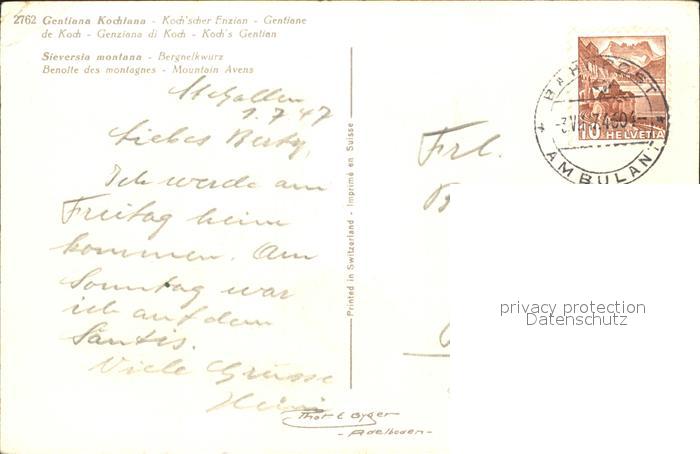 2762 Gentiana Kochiana - Koch'scher Enzian - Gentiane
de Koch - Genziana di Koch - Koch's Gentian
Sieversia montana - Bergnelkwurz
Benoite des montagnes - Mountain Avens
St. Gallen
1.7.47
Liebes Berty,
Ich werde am
Freitag heim
kommen. Am
Sonntag war
ich auf dem
Säntis.
Viele Grüsse
Heini
Printed in Switzerland - Imprimé en Suisse
Thor E Gyger
- Adelboden -
BAHNPOST
AMBULANT
10 HELVETIA
Frl.
privacy protection
Datenschutz